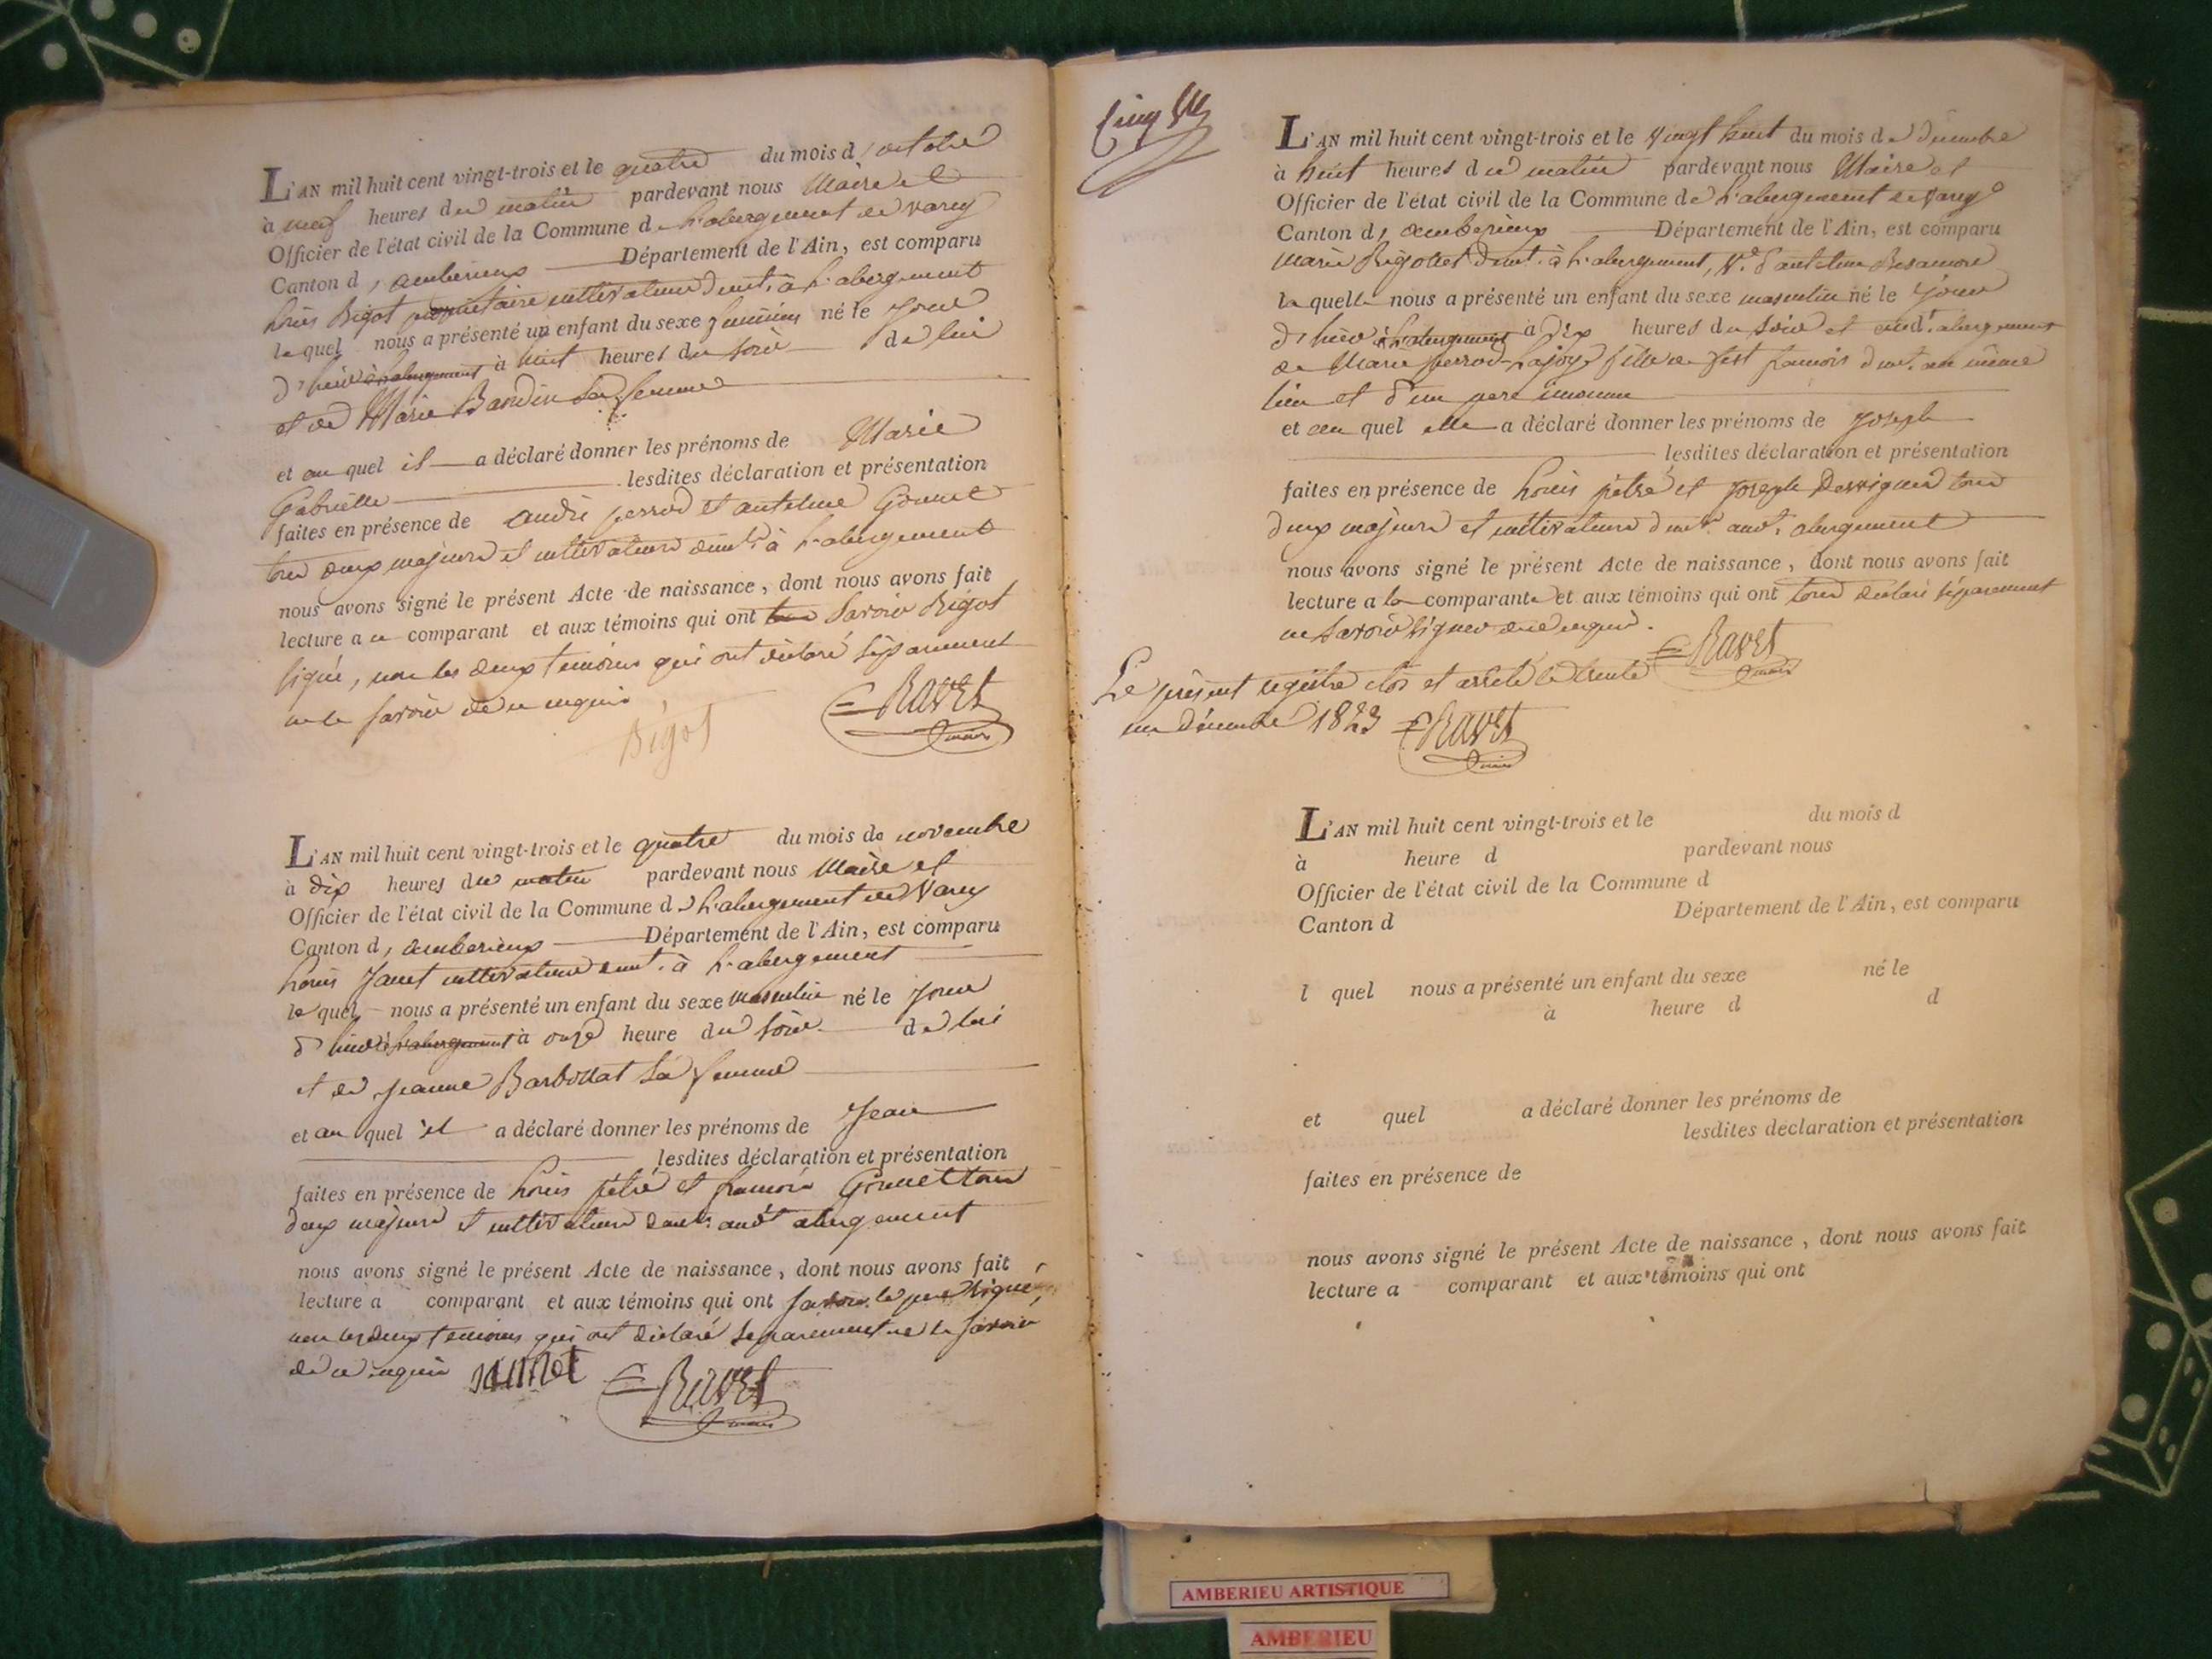 L'AN mil huit cent vingt-trois et le quatre du mois d'octobre
à neuf heures du matin pardevant nous Maire et
Officier de l'état civil de la Commune de L'abergement de varey
Canton d'amberieux Département de l'Ain, est comparu
Louis Bigot propriétaire cultivateur demt. à L'abergement
lequel nous a présenté un enfant du sexe féminin né le jour
d'hier à L'abergement à huit heures du soir de lui
et de Marie Baudin sa femme
et au quel il a déclaré donner les prénoms de Marie
Gabrielle lesdites déclaration et présentation
faites en présence de andré perrod et antelme Gonnet
tous deux majeurs et cultivateurs demts. à L'abergement
nous avons signé le présent Acte de naissance, dont nous avons fait
lecture a ce comparant et aux témoins qui ont savoir Bigot
signé, non les deux temoins qui ont déclaré séparement
ne le savoir de ce requis
Bigot Ravet
maire
L'AN mil huit cent vingt-trois et le quatre du mois de novembre
à dix heures du matin pardevant nous Maire et
Officier de l'état civil de la Commune de L'abergement de Varey
Canton d'amberieux Département de l'Ain, est comparu
Louis Janet cultivateur demt. à L'abergement
lequel nous a présenté un enfant du sexe masculin né le jour
d'hier à L'abergement à onze heure du soir de lui
et de jeanne Barbollat sa femme
et au quel il a déclaré donner les prénoms de Jean
lesdites déclaration et présentation
faites en présence de Louis pitre et francois Gonnet tous
deux majeurs et cultivateurs demts. audt abergement
nous avons signé le présent Acte de naissance, dont nous avons fait
lecture a comparant et aux témoins qui ont savoir le pere signé,
non les deux temoins qui ont déclaré separement ne le savoir
de ce requis Ravet
maire
Cinq
L'AN mil huit cent vingt-trois et le vingt huit du mois de décembre
à huit heures du matin pardevant nous Maire et
Officier de l'état civil de la Commune de L'abergement de Varey
Canton d'amberieux Département de l'Ain, est comparu
Marie Rigollet demt. à L'abergement, Ve. d'antelme
laquelle nous a présenté un enfant du sexe masculin né le jour
d'hier à L'abergement à dix heures du soir et audt. abergement
de Marie perrod-Lajoye fille de fest francois demt. au même
lieu et d'un pere inconnu
et au quel elle a déclaré donner les prénoms de Joseph
lesdites déclaration et présentation
faites en présence de Louis pitre et joseph Dervigne tous
deux majeurs et cultivateurs demts. audt. abergement
nous avons signé le présent Acte de naissance, dont nous avons fait
lecture a la comparante et aux témoins qui ont tous déclaré séparement
ne savoir signer de ce requis. Ravet
maire
Le présent registre clos et arrêté le trente
un décembre 1823 Ravet
maire
L'AN mil huit cent vingt-trois et le du mois d
à heure d pardevant nous
Officier de l'état civil de la Commune d
Canton d Département de l'Ain, est comparu
l quel nous a présenté un enfant du sexe né le
à heure d d
et quel a déclaré donner les prénoms de
lesdites déclaration et présentation
faites en présence de
nous avons signé le présent Acte de naissance, dont nous avons fait
lecture a comparant et aux témoins qui ont
AMBERIEU ARTISTIQUE
AMBERIEU